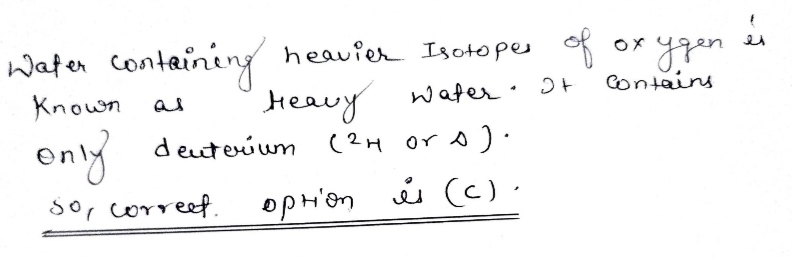 Water containing heavier Isotopes of oxygen is
Known as Heavy Water. It contains
only deuterium (2H or D).
so, correct. option is (C).